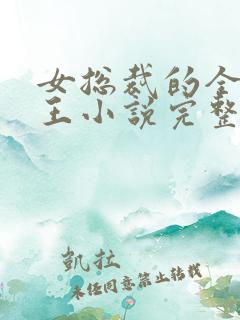 女总裁的全
王小说完整
凱拉
未经同意禁止转载